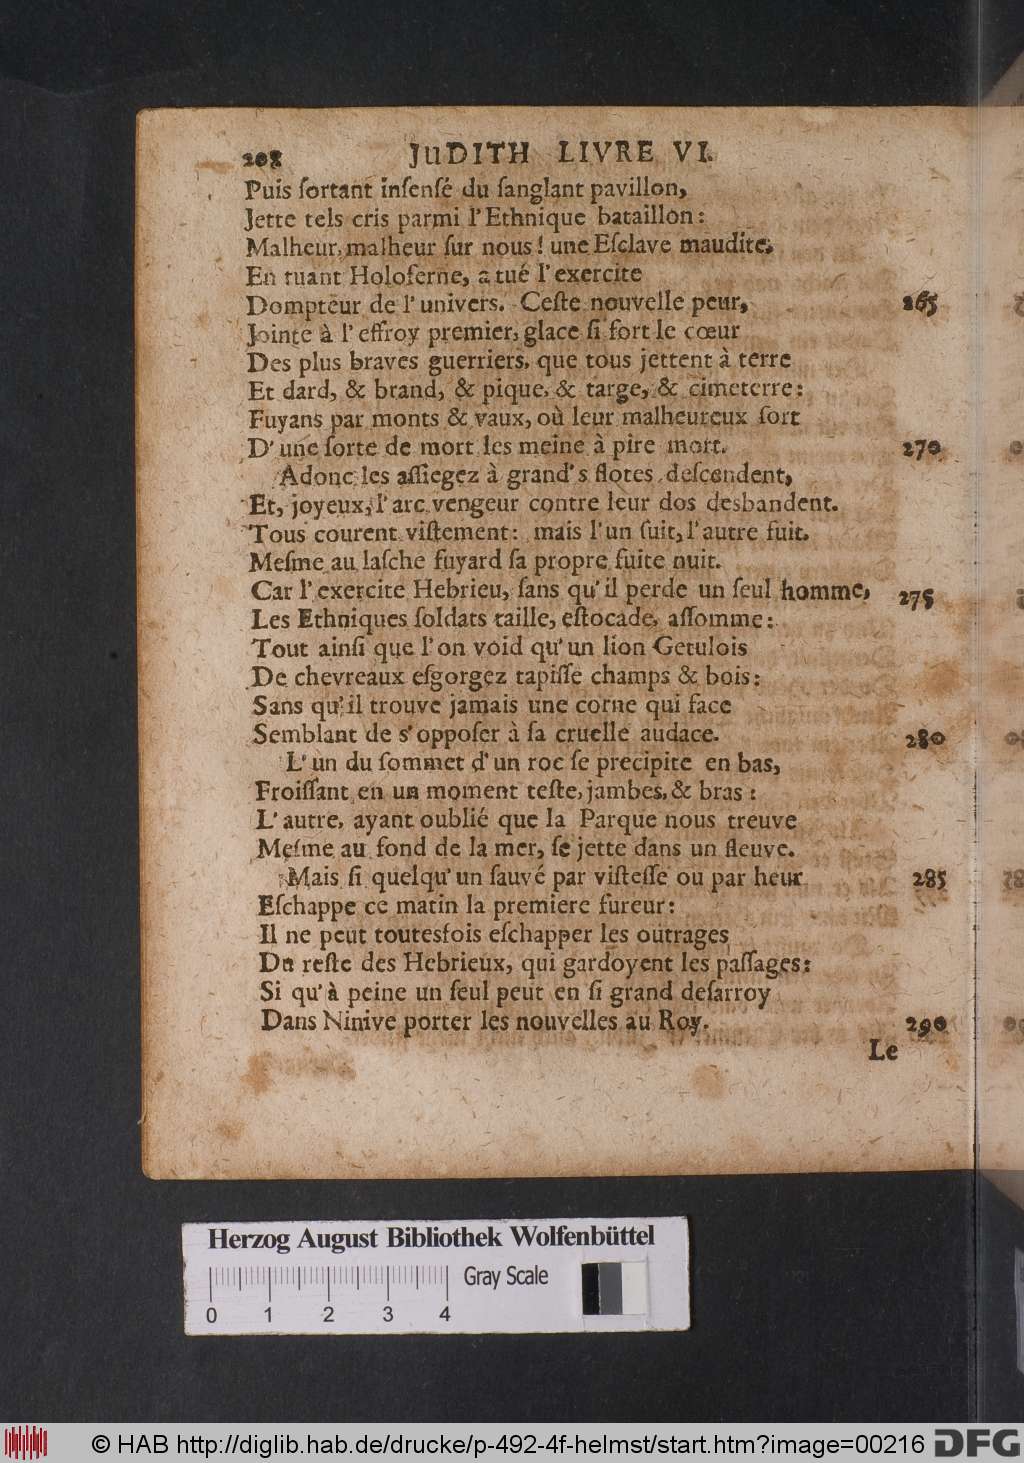 208 JuDITH LIVRE VI.
Puis ſortant inſenſé du ſanglant pavillon,
Jette tels cris parmi l'Ethnique bataillon:
Malheur, malheur ſur nous! une Eſclave maudite,
En tuant Holoferne, a tué l'exercite
Dompteur de l'univers. Ceſte nouvelle peur, 265
Jointe à l'effroy premier, glace ſi fort le cœur
Des plus braves guerriers, que tous jettent à terre
Et dard, & brand, & pique, & targe, & cimeterre:
Fuyans par monts & vaux, où leur malheureux ſort
D'une ſorte de mort les meine à pire mort. 270
Adonc les aſſiegez à grand's flotes deſcendent,
Et, joyeux, l'arc vengeur contre leur dos desbandent.
Tous courent viſtement: mais l'un ſuit, l'autre fuit.
Meſme au laſche fuyard ſa propre fuite nuit.
Car l'exercite Hebrieu, ſans qu'il perde un ſeul homme, 275
Les Ethniques ſoldats taille, eſtocade, aſſomme:
Tout ainſi que l'on void qu'un lion Getulois
De chevreaux eſgorgez tapiſſe champs & bois:
Sans qu'il trouve jamais une corne qui face
Semblant de s'oppoſer à ſa cruelle audace. 280
L'un du ſommet d'un roc ſe precipite en bas,
Froiſſant en un moment teſte, jambes, & bras:
L'autre, ayant oublié que la Parque nous treuve
Meſme au fond de la mer, ſe jette dans un fleuve.
Mais ſi quelqu'un ſauvé par viſteſſe ou par heur 285
Eſchappe ce matin la premiere fureur:
Il ne peut toutesfois eſchapper les outrages
Du reſte des Hebrieux, qui gardoyent les paſſages:
Si qu'à peine un ſeul peut en ſi grand deſarroy
Dans Ninive porter les nouvelles au Roy. 290
Le
Herzog August Bibliothek Wolfenbüttel
Gray Scale
0 1 2 3 4
© HAB http://diglib.hab.de/drucke/p-492-4f-helmst/start.htm?image=00216 DFG